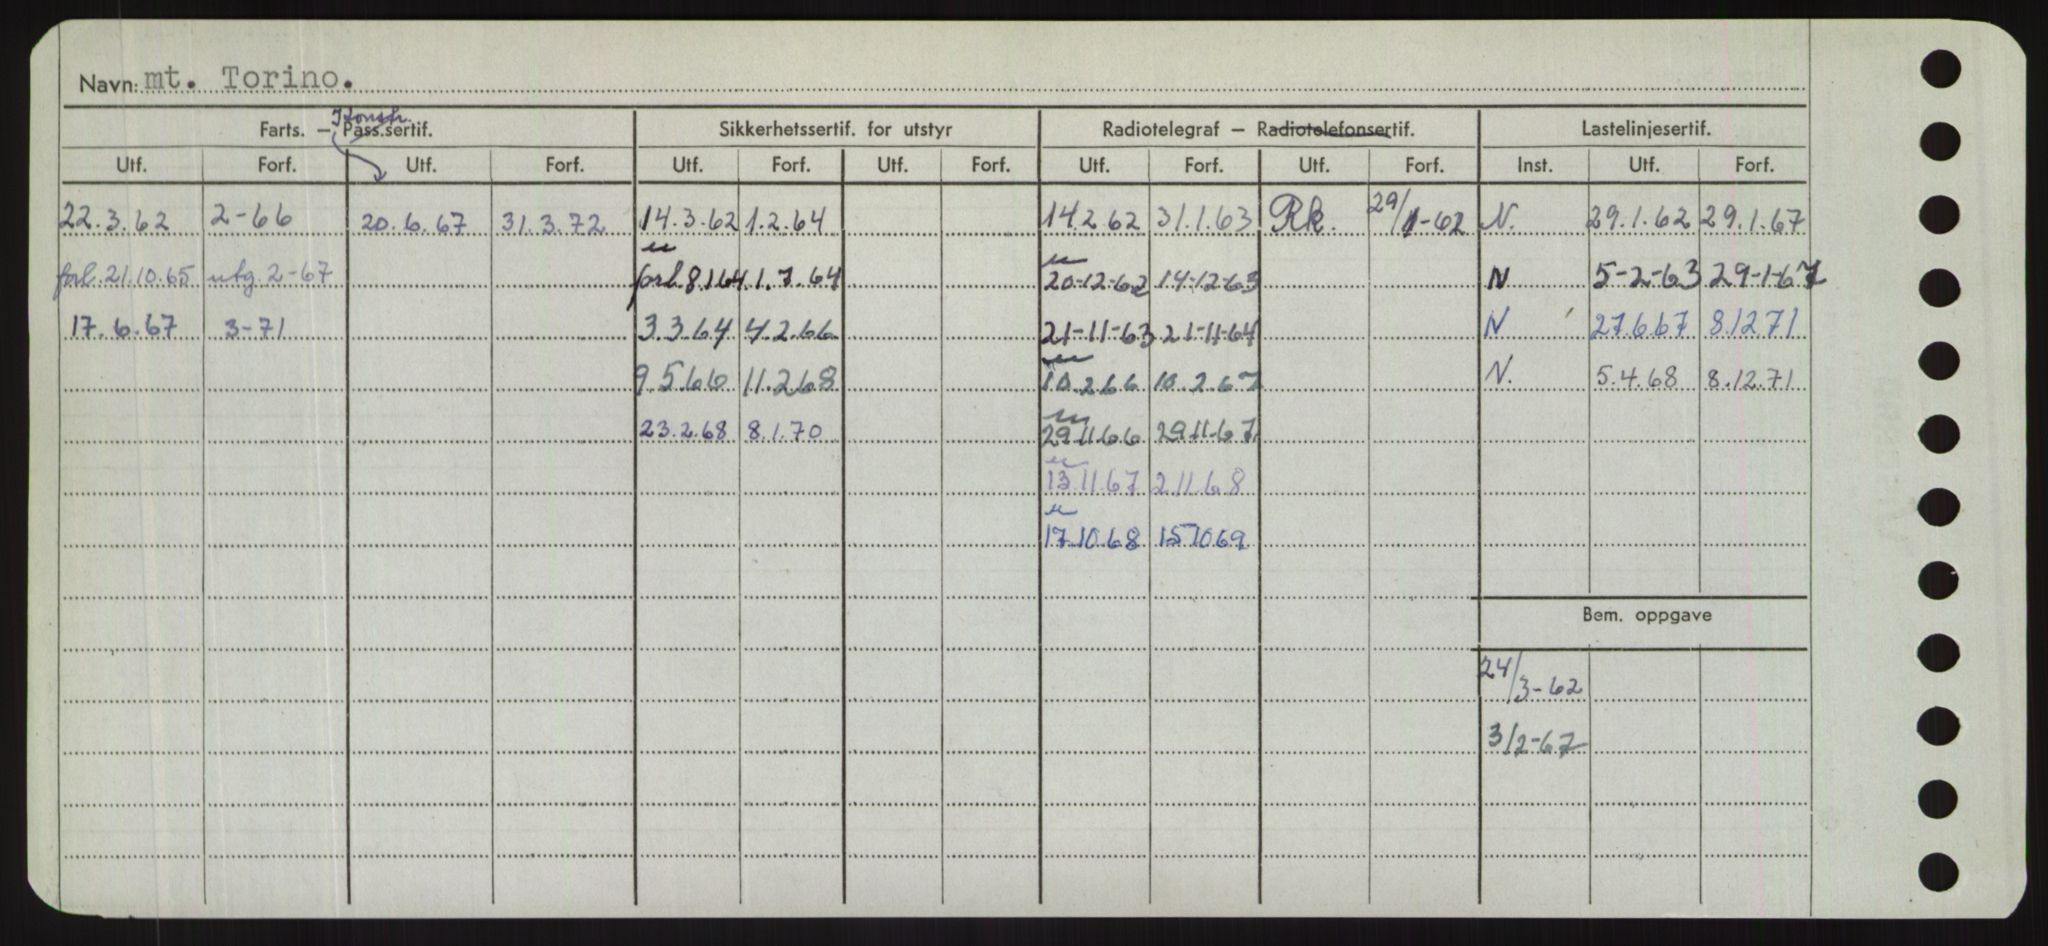 Navn: mt. Torino.
Konstr.
Farts. — Pass.sertif. Sikkerhetssertif. for utstyr Radiotelegraf — Radiotelefonsertif. Lastelinjesertif.
Utf. Forf. Utf. Forf. Utf. Forf. Utf. Forf. Utf. Forf. Utf. Forf. Inst. Utf. Forf.
22.3.62 2-66 20.6.67 31.3.72 14.3.62 1.2.64 14.2.62 31.1.63 Rk. 29/1-62 N. 29.1.62 29.1.67
forl. 21.10.65 utg. 2-67 forl. 8.1.64 1.7.64 20-12-62 14-12-63 N 5-2-63 29-1-67
17.6.67 3-71 3.3.64 4.2.66 21-11-63 21-11-64 N 27.6.67 8.12.71
9.5.66 11.2.68 10.2.66 10.2.67 N. 5.4.68 8.12.71
23.2.68 8.1.70 29.11.66 29.11.67
13.11.67 2.11.68
17.10.68 15.10.69
Bem. oppgave
24/3-62
3/2-67